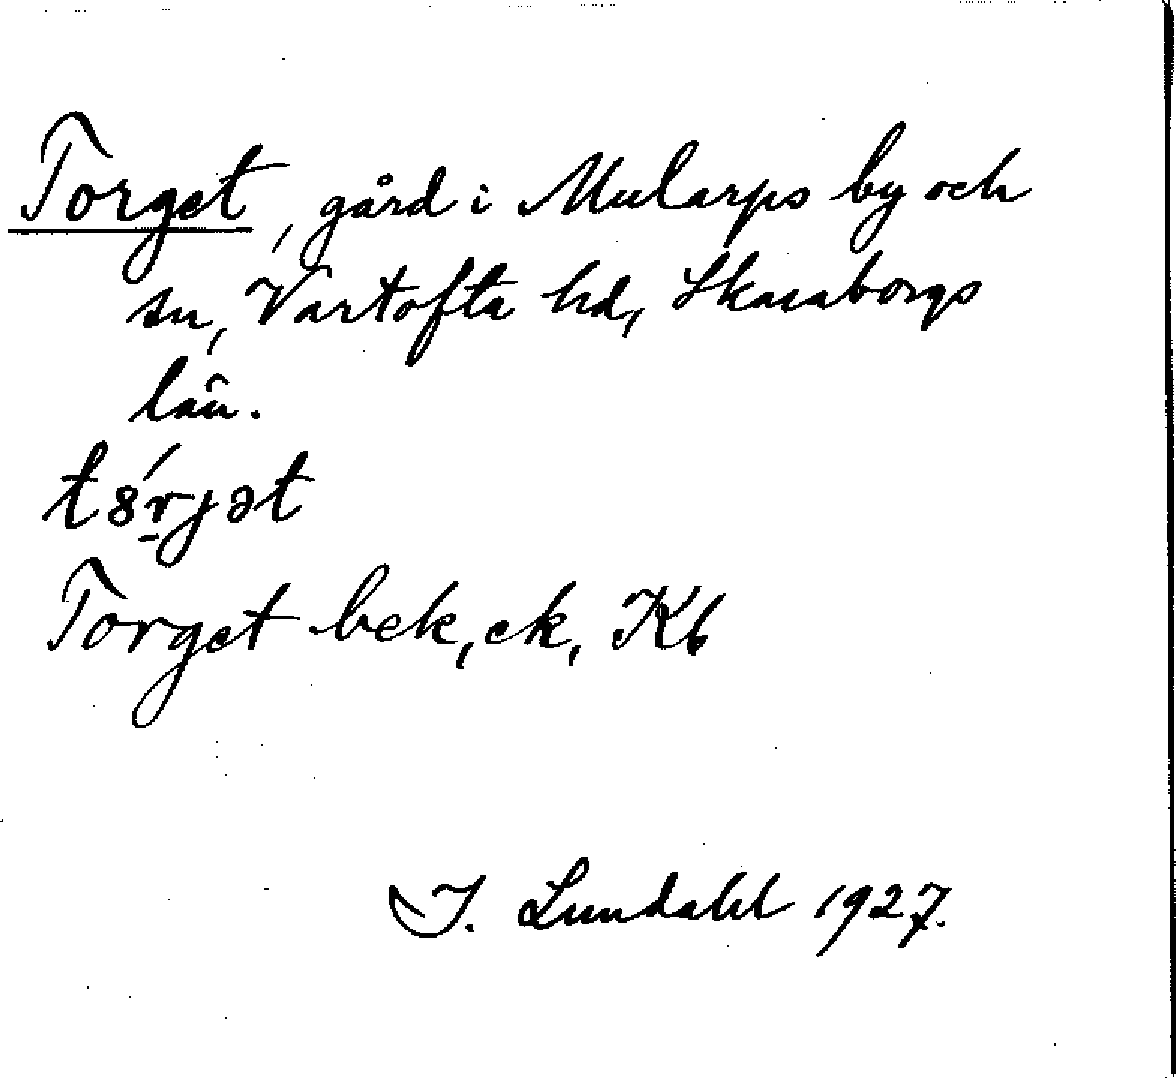 Torget, gård i Mularps by och
sn, Vartofta hd, Skaraborgs
län.
t8́r̠jət
Torget bek, ek, Kb
I. Lundahl 1927.